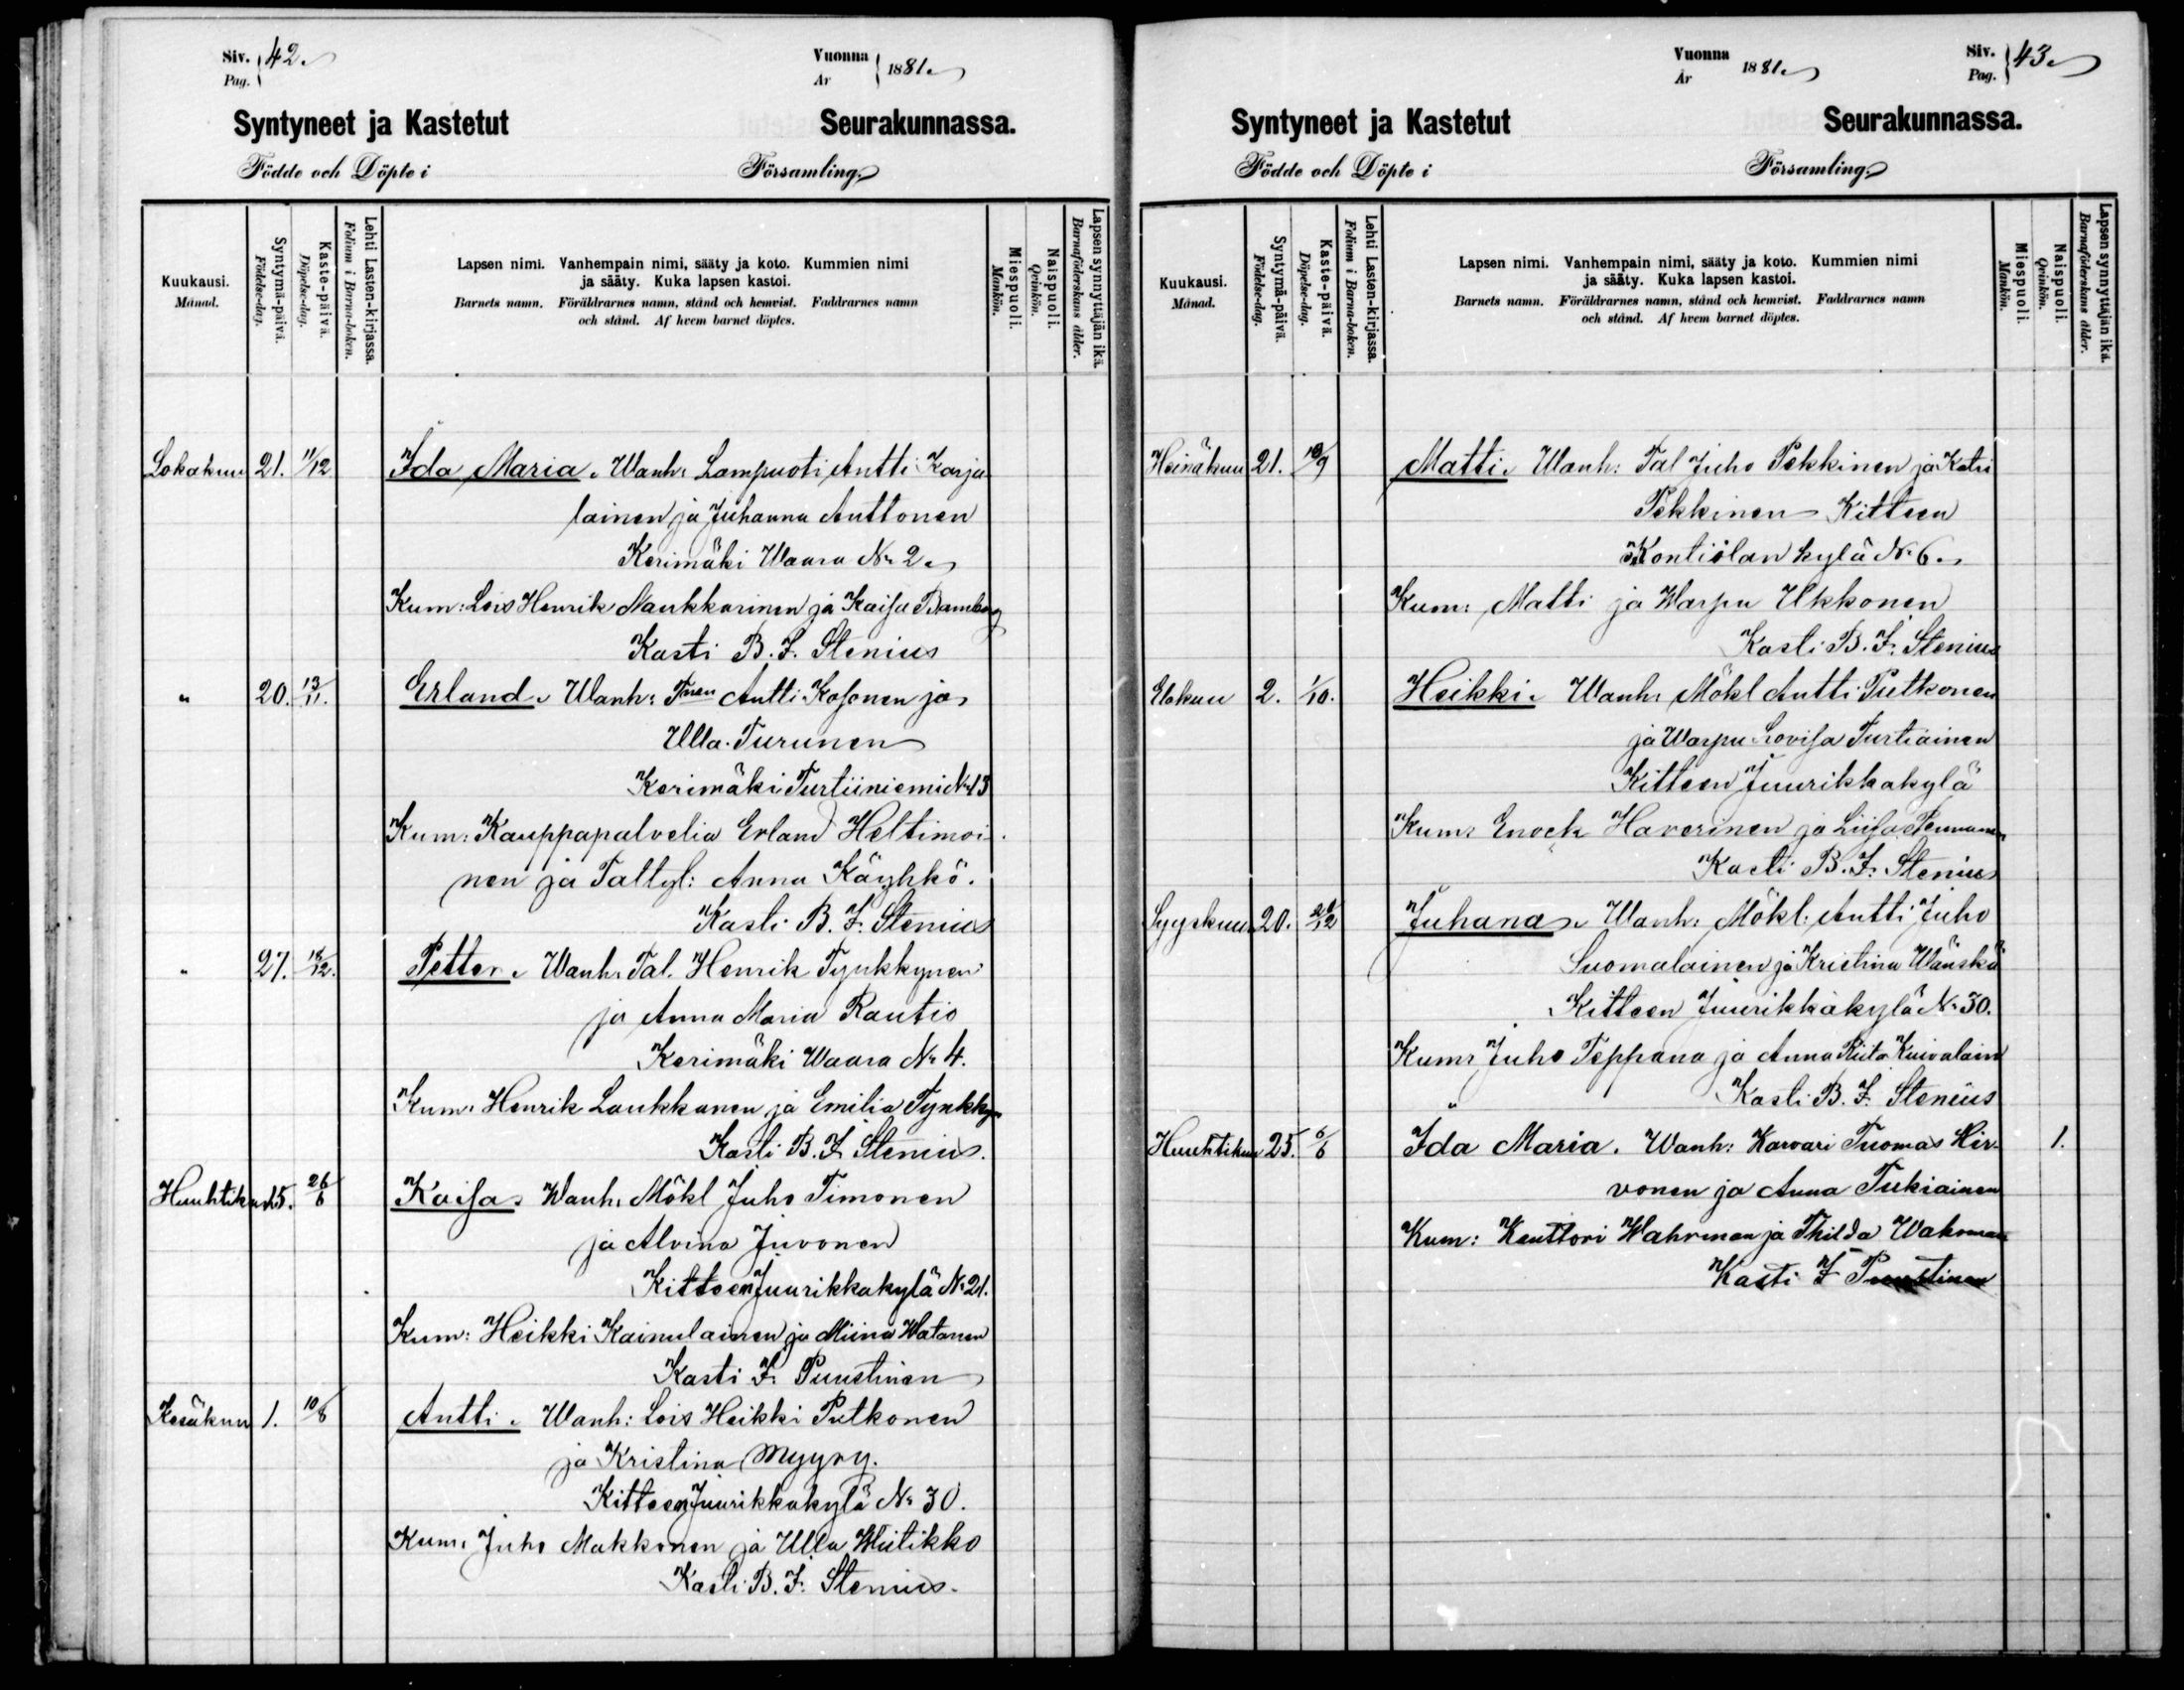 Siv. 42.
Pag.
Vuonna 1881.
År
Syntyneet ja Kastetut Seurakunnassa.
Födde och Döpte i Församling.
Kuukausi.
Månad.
Syntymä-päivä.
Födelse-dag.
Kaste-päivä.
Döpelse-dag.
Lehti Lasten-kirjassa.
Folium i Barna-boken.
Lapsen nimi. Vanhempain nimi, sääty ja koto. Kummien nimi
ja sääty. Kuka lapsen kastoi.
Barnets namn. Föräldrarnes namn, stånd och hemvist. Faddrarnes namn
och stånd. Af hvem barnet döptes.
Miespuoli.
Mankön.
Naispuoli.
Qvinkön.
Lapsen synnyttäjän ikä.
Barnaföderskans ålder.
Lokakuu 21. 11/12 Ida Maria. Wanh: Lampuoti Antti Karja
lainen ja Juhanna Anttonen
Kerimäki Waara No 2.
Kum: Lois Henrik Naukkarinen ja Kaisa
Kasti B. F. Stenius
" 20. 13/11. Erland. Wanh: Antti Kosonen ja
Ulla Turunen
Kerimäki Turtiiniemi No 13
Kum: Kauppapalvelia Erland Heltimoi-
nen ja Taltyt: Anna Käyhkö.
Kasti B. F. Stenius
" 27. 18/12. Petter. Wanh: Tal. Henrik Tynkkynen
ja Anna Maria Rautio
Kerimäki Waara No 4.
Kum: Henrik Laukkanen ja Emilia Tynkkyn
Kasti B. F. Stenius.
Huuhtikuu 15. 26/6 Kaisa. Wanh: Mökl Juho Timonen
ja Alvina Juvonen
Kitteen Juurikkakylä No 21.
Kum: Heikki Kainulainen ja Miina Watanen
Kasti F. Puustinen
Kesäkuu 1. 10/8 Antti. Wanh: Lois Heikki Putkonen
ja Kristina Myyry.
Kitteen Juurikkakylä No 30.
Kum: Juho Makkonen ja Ulla Wiitikko
Kasti B. F. Stenius.
Vuonna 1881.
År
Siv. 43.
Pag.
Syntyneet ja Kastetut Seurakunnassa.
Födde och Döpte i Församling.
Kuukausi.
Månad.
Syntymä-päivä.
Födelse-dag.
Kaste-päivä.
Döpelse-dag.
Lehti Lasten-kirjassa.
Folium i Barna-boken.
Lapsen nimi. Vanhempain nimi, sääty ja koto. Kummien nimi
ja sääty. Kuka lapsen kastoi.
Barnets namn. Föräldrarnes namn, stånd och hemvist. Faddrarnes namn
och stånd. Af hvem barnet döptes.
Miespuoli.
Mankön.
Naispuoli.
Qvinkön.
Lapsen synnyttäjän ikä.
Barnaföderskans ålder.
Heinäkuu 21. Matti. Wanh: Tal Juho Pekkinen ja Katri
Pekkinen Kitteen
Kontiolan kylä No 6.
Kum: Matti ja Warpu Ukkonen
Kasti B. F. Stenius
Elokuu 2. 1/10. Heikki. Wanh: Mökl Antti Putkonen
ja Warpu Lovisa Turtiainen
Kitteen Juurikkakylä
Kum: Enock Haverinen ja Liisa Pennanen
Kasti B. F. Stenius
Syyskuu 20. Juhana. Wanh: Mökl: Antti Juho
Suomalainen ja Kristina Wänskä
Kitteen Juurikkakylä No 30.
Kum: Juho Teppana ja Anna Riita Kuivalain
" Kasti B. F. Stenius
Huuhtikuu 25. 6/6 Ida Maria. Wanh: Karvari Tuomas Hir- 1.
vonen ja Anna Tukiainen
Kum: Kanttori Wahrman ja Thilda Wahrman
Kasti F Puustinen